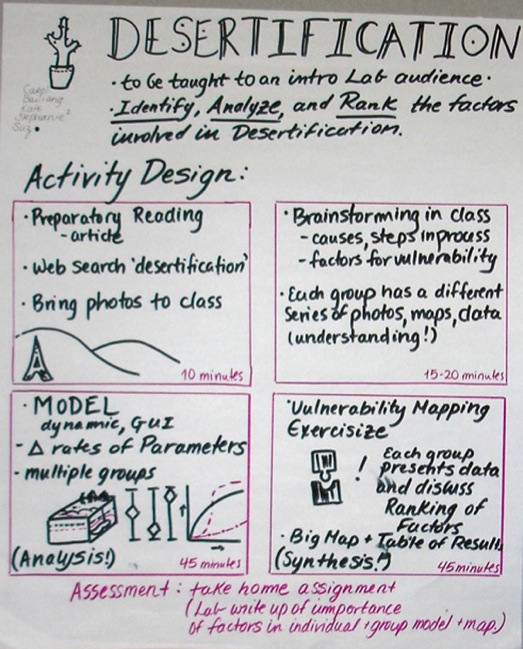 DESERTIFICATION
• to be taught to an intro Lab audience •
• Identify, Analyze, and Rank the factors
involved in Desertification.
Carol
Kate
Stephanie²
Suz •
Activity Design:
• Preparatory Reading
- article
• Web search 'desertification'
• Bring photos to class
10 minutes
• Brainstorming in class
- causes, steps in process
- factors for vulnerability
• Each group has a different
Series of photos, maps, data
(understanding!)
15-20 minutes
• MODEL
dynamic, GUI
- Δ rates of Parameters
- multiple groups
(Analysis!)
45 minutes
• Vulnerability Mapping
Exercisize
! Each group
presents data
and discuss
Ranking of
Factors
• Big Map + Table of Results
(Synthesis!)
45 minutes
Assessment: take home assignment
(Lab write up of iimportance
of factors in individual + group model + map.)